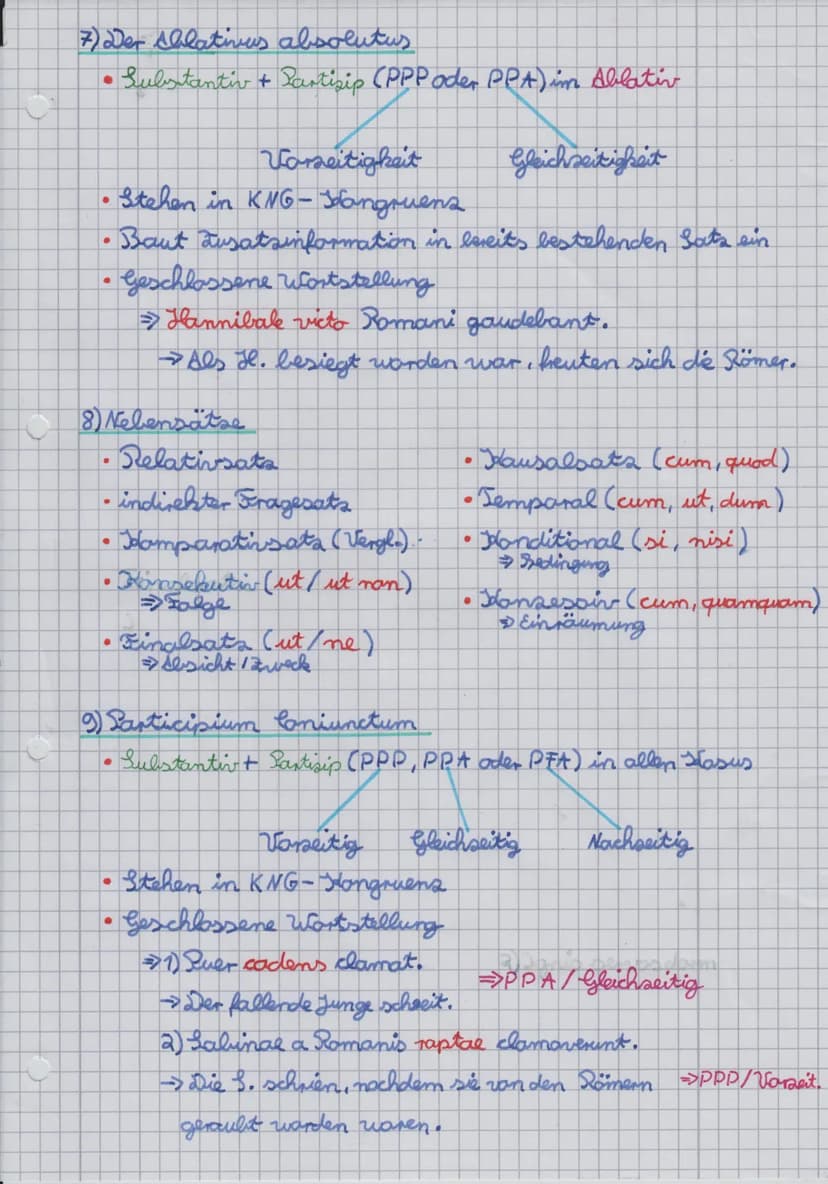 7) Der Ablativus absolutus
• Substantiv + Partizip (PPP oder PPA) im Ablativ
Vorzeitigkeit Gleichzeitigkeit
• Stehen in KNG-Kongruenz
• Baut Zusatzinformation in bereits bestehenden Satz ein
• Geschlossene Wortstellung
⇒ Hannibale victo Romani gaudebant.
→ Als H. besiegt worden war, freuten sich die Römer.
8) Nebensätze
• Relativsatz
• indirekter Fragesatz
• Komparativsatz (Vergl.)
• Konsekutiv (ut / ut non)
⇒ Folge
• Finalsatz (ut / ne)
⇒ Absicht / Zweck
• Kausalsatz (cum, quod)
• Temporal (cum, ut, dum)
• Konditional (si, nisi)
⇒ Bedingung
• Konzessiv (cum, quamquam)
⇒ Einräumung
9) Participium Coniunctum
• Substantiv + Partizip (PPP, PPA oder PFA) in allen Kasus
Vorzeitig Gleichzeitig Nachzeitig
• Stehen in KNG-Kongruenz
• Geschlossene Wortstellung
⇒ 1) Puer cadens clamat.
⇒ PPA / Gleichzeitig
→ Der fallende Junge schreit.
2) Sabinae a Romanis raptae clamaverunt.
→ Die S. schrien, nachdem sie von den Römern ⇒ PPP / Vorzeit.
geraubt worden waren.